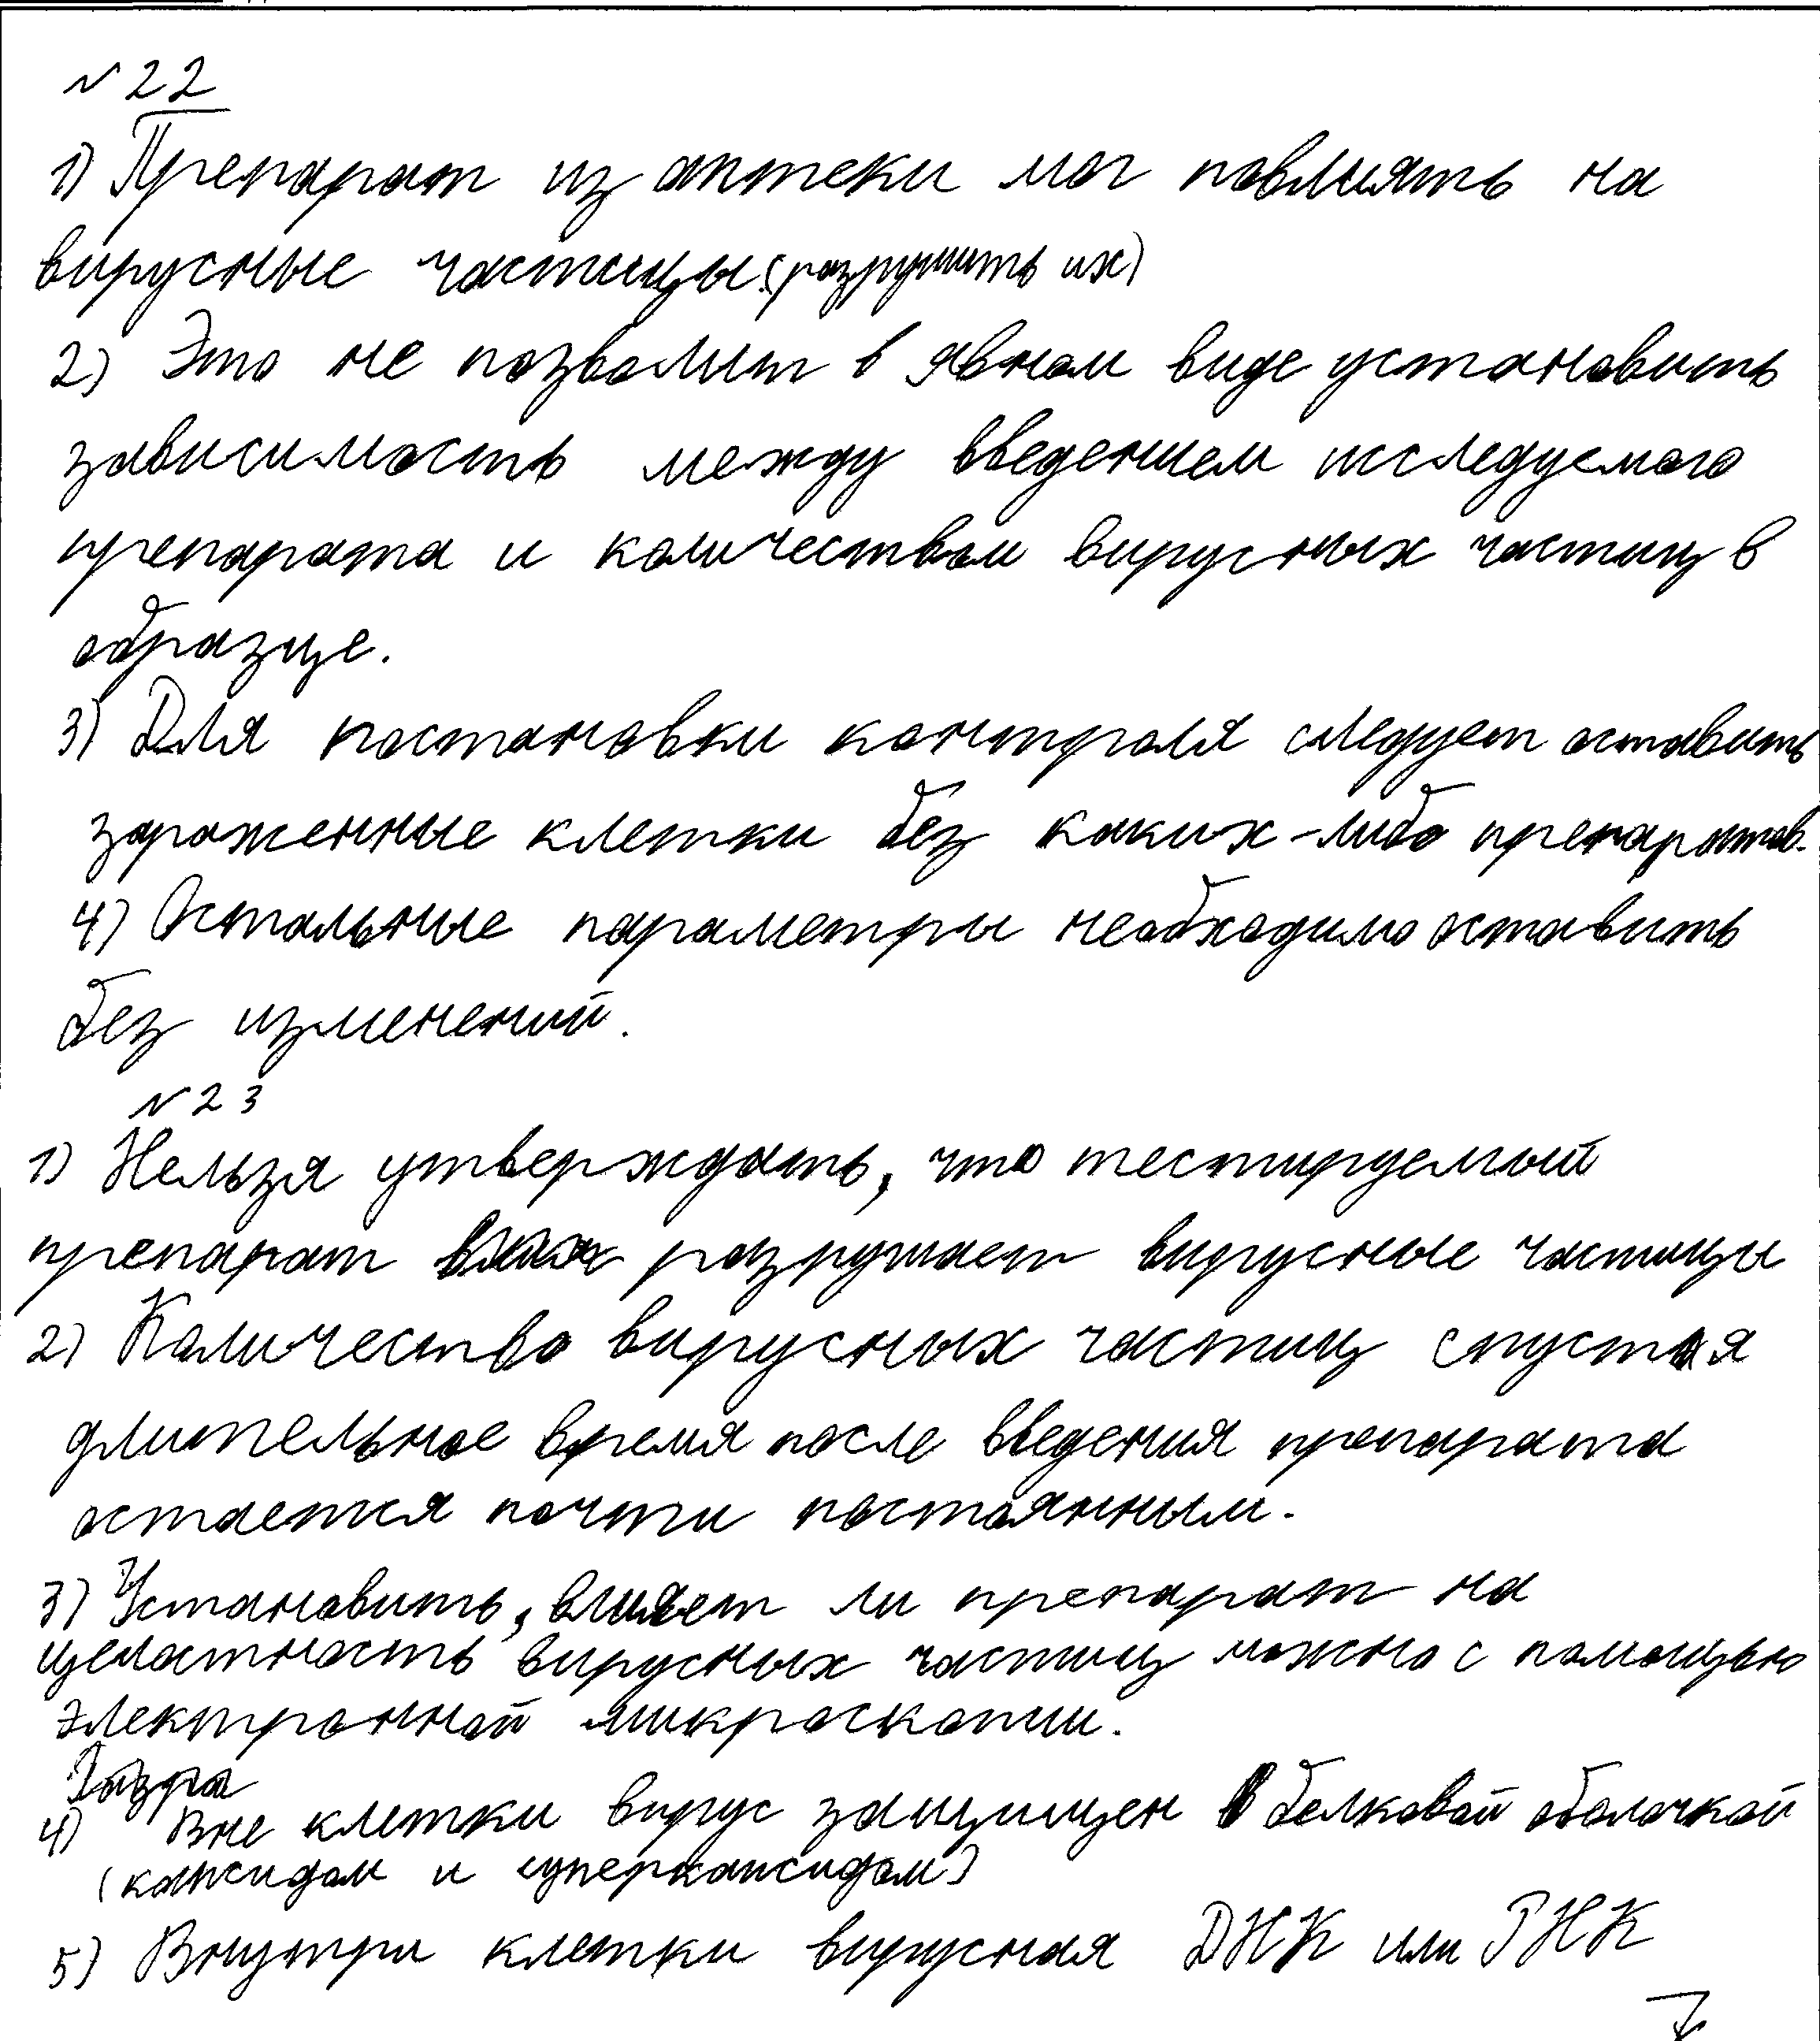 №22
1) Препарат из аптеки мог повлиять на
вирусные частицы.(разрушить их)
2) Это не позволит в явном виде установить
зависимость между введением исследуемого
препарата и количеством вирусных частиц в
образце.
3) Для постановки контроля следует оставить
зараженные клетки без каких-либо препаратов.
4) Остальные параметры необходимо оставить
без изменений.
№23
1) Нельзя утверждать, что тестируемый
препарат разрушает вирусные частицы
2) Количество вирусных частиц спустя
длительное время после введения препарата
остается почти постоянным.
3) Установить, влияет ли препарат на
целостность вирусных частиц можно с помощью
электронной микроскопии.
4) Вне клетки вирус защищен белковой оболочкой
(капсидом и суперкапсидом)
5) Внутри клетки вирусная ДНК или РНК